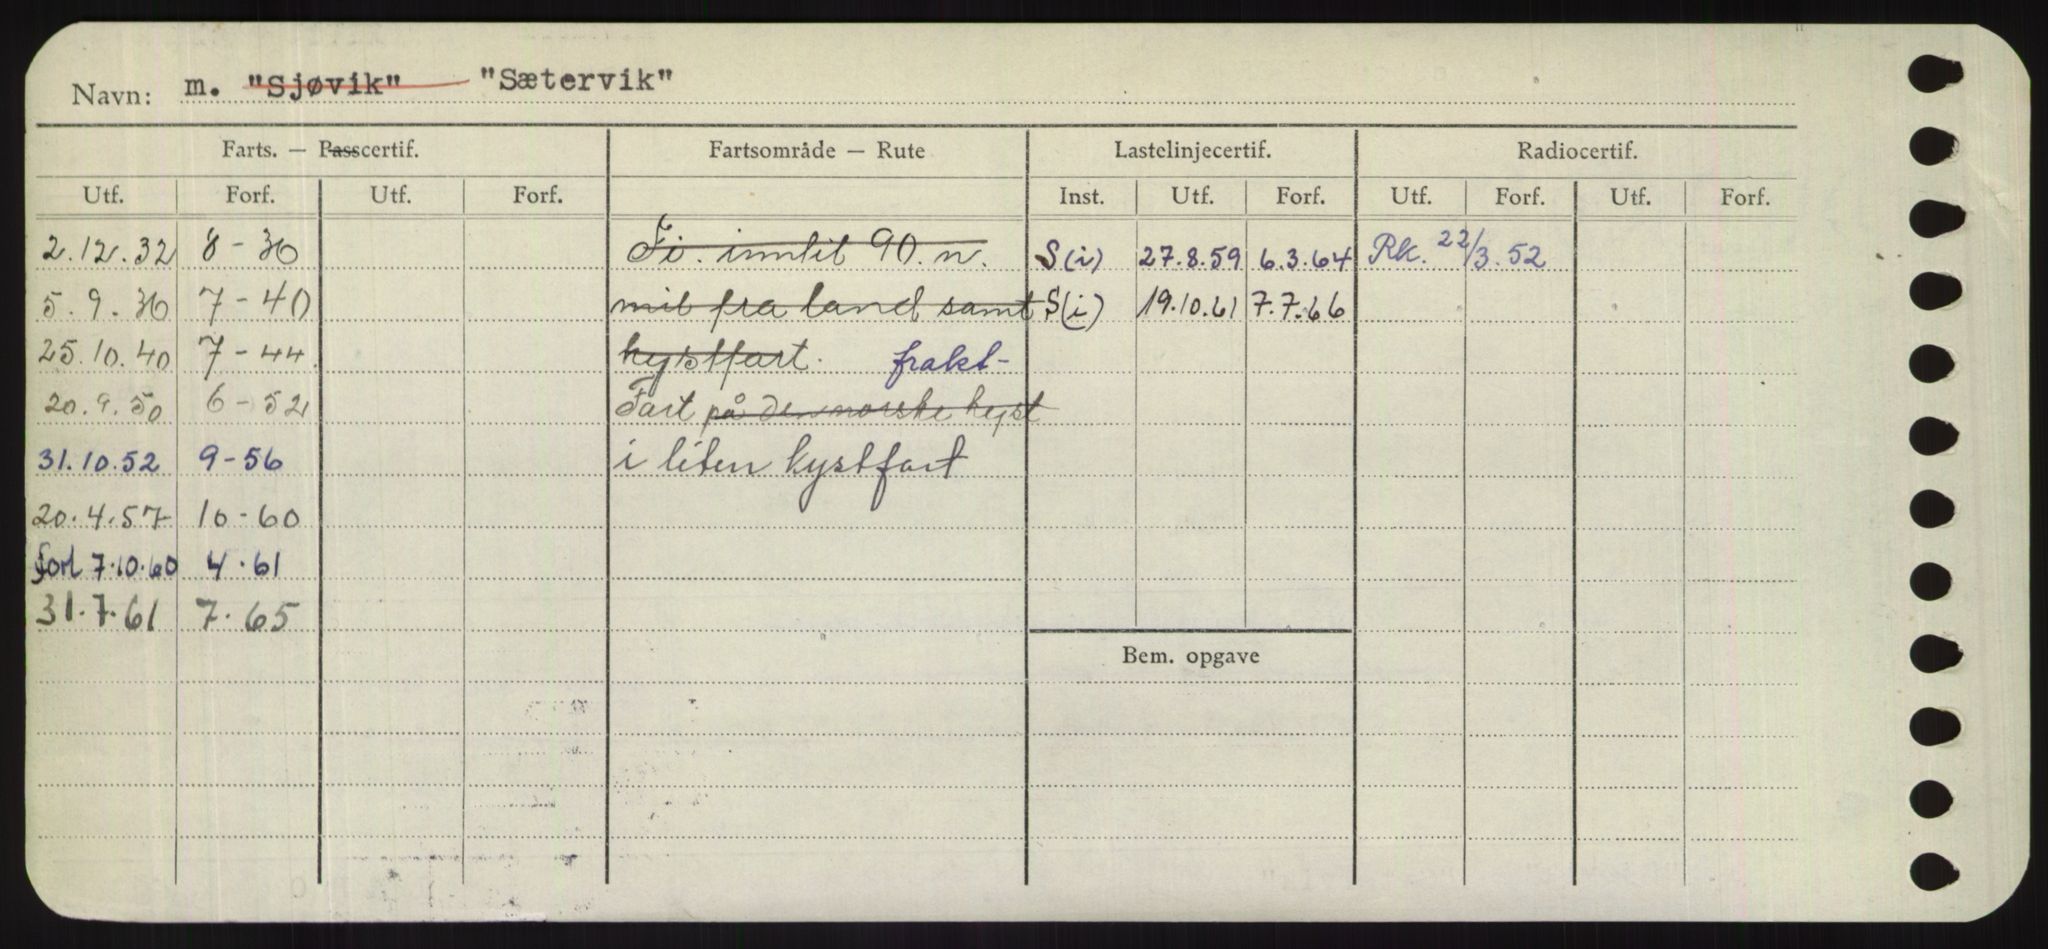 Navn: m. "Sjøvik" "Sætervik"
Farts. — Passcertif. Fartsområde — Rute Lastelinjecertif. Radiocertif.
Utf. Forf. Utf. Forf. Inst. Utf. Forf. Utf. Forf. Utf. Forf.
2.12.32 8-36 Fi. inntil 90. n. S(i) 27.8.59 6.3.64 Rk. 22/3.52
5.9.36 7-40 mil fra land samt S(i) 19.10.61 7.7.66
25.10.40 7-44. kystfart. frakt-
20.9.50 6-52 Fart på den norske kyst
31.10.52 9-56 i liten kystfart
20.4.57 10-60
forl 7.10.60 4.61
31.7.61 7.65
Bem. opgave